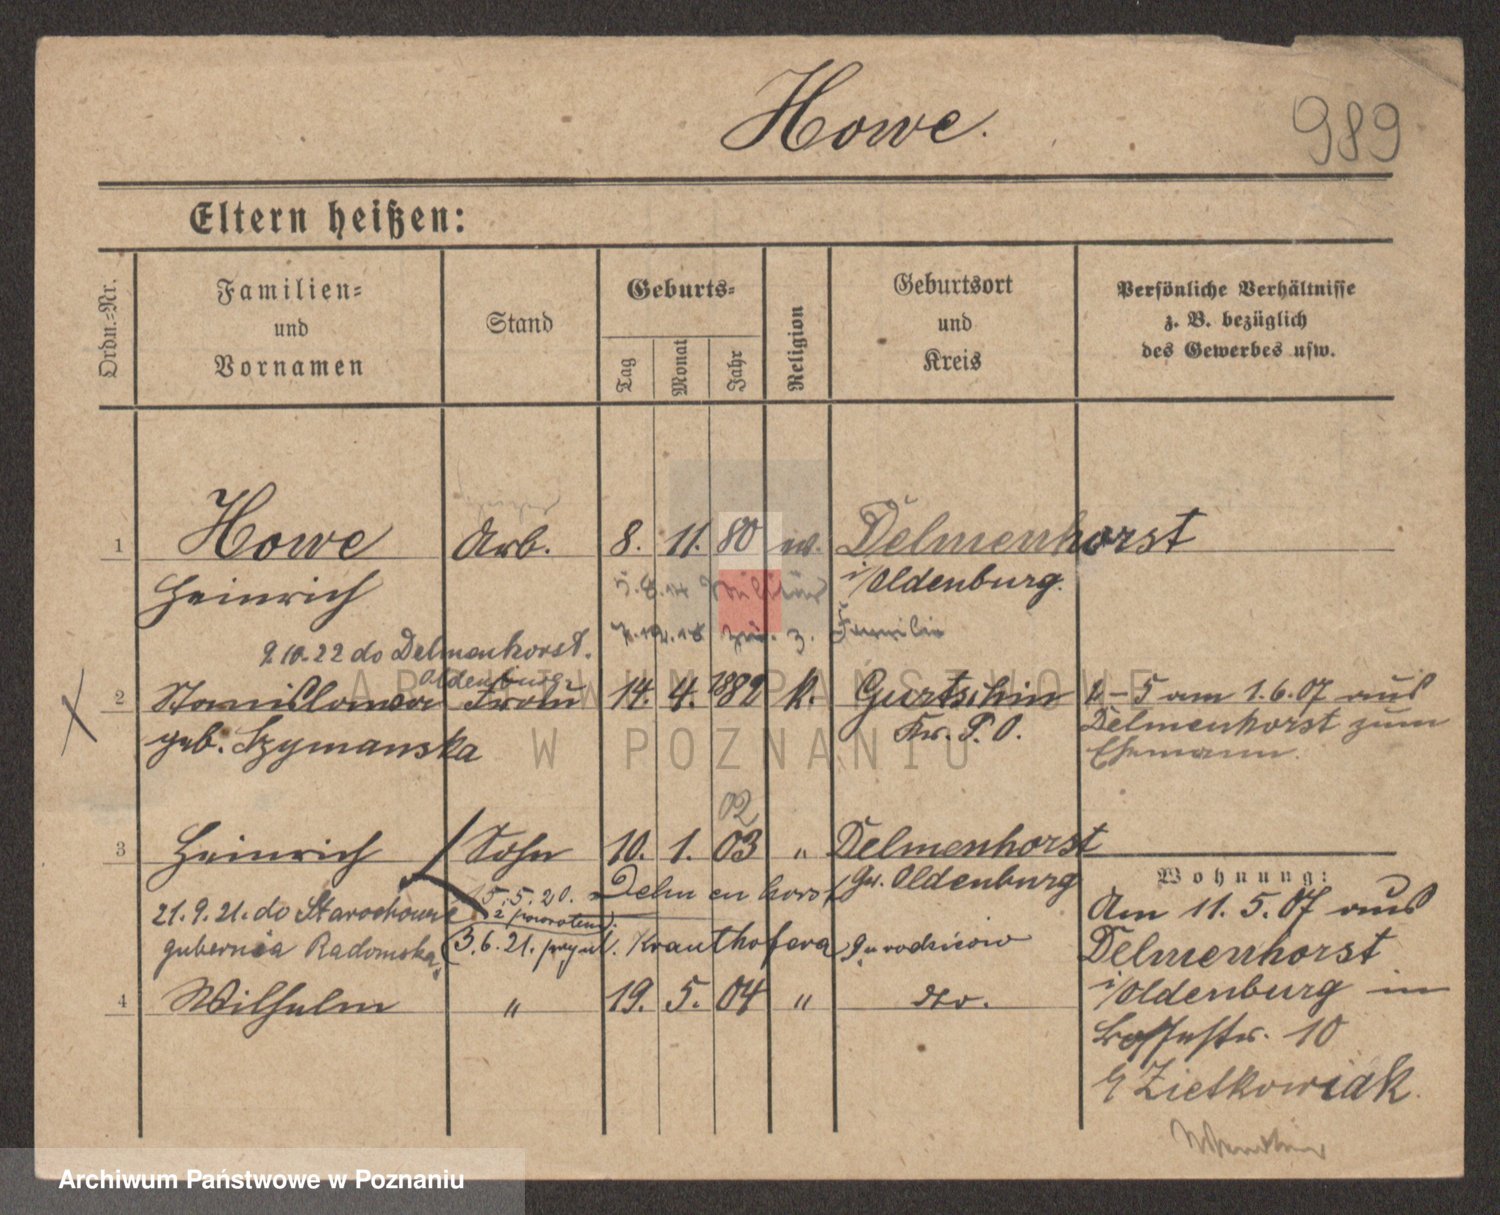 Howe.
989
Eltern heißen:
Ordn.-Nr.
Familien-
und
Vornamen
Stand
Geburts-
Tag
Monat
Jahr
Religion
Geburtsort
und
Kreis
Persönliche Verhältnisse
z. B. bezüglich
des Gewerbes usw.
1 Howe Arb. 8. 11. 80 Delmenhorst
Heinrich i/Oldenburg.
5.8.14 Militär
zur. z. Familie
9.10.22 do Delmenhorst.
Oldenburg.
2 Stanislawa Frau 14. 4. 1882 k. Gurtschin 2-5 am 1.6.07 aus
geb. Szymanska Kr. P. O. Delmenhorst zum
Ehemann.
02
3 Heinrich Sohn 10. 1. 03 " Delmenhorst
Gr. Oldenburg
Wohnung:
15.5.20. Delmenhorst
21.9.21. do Starochowice z powrotem
gubernia Radomska 3.6.21. Krauthofera 9 u rodziców
4 Wilhelm " 19. 5. 04 " dto.
Am 11. 5. 07 aus
Delmenhorst
i/Oldenburg in
10
Zietkowiak.
ARCHIWUM PAŃSTWOWE
W POZNANIU
Archiwum Państwowe w Poznaniu